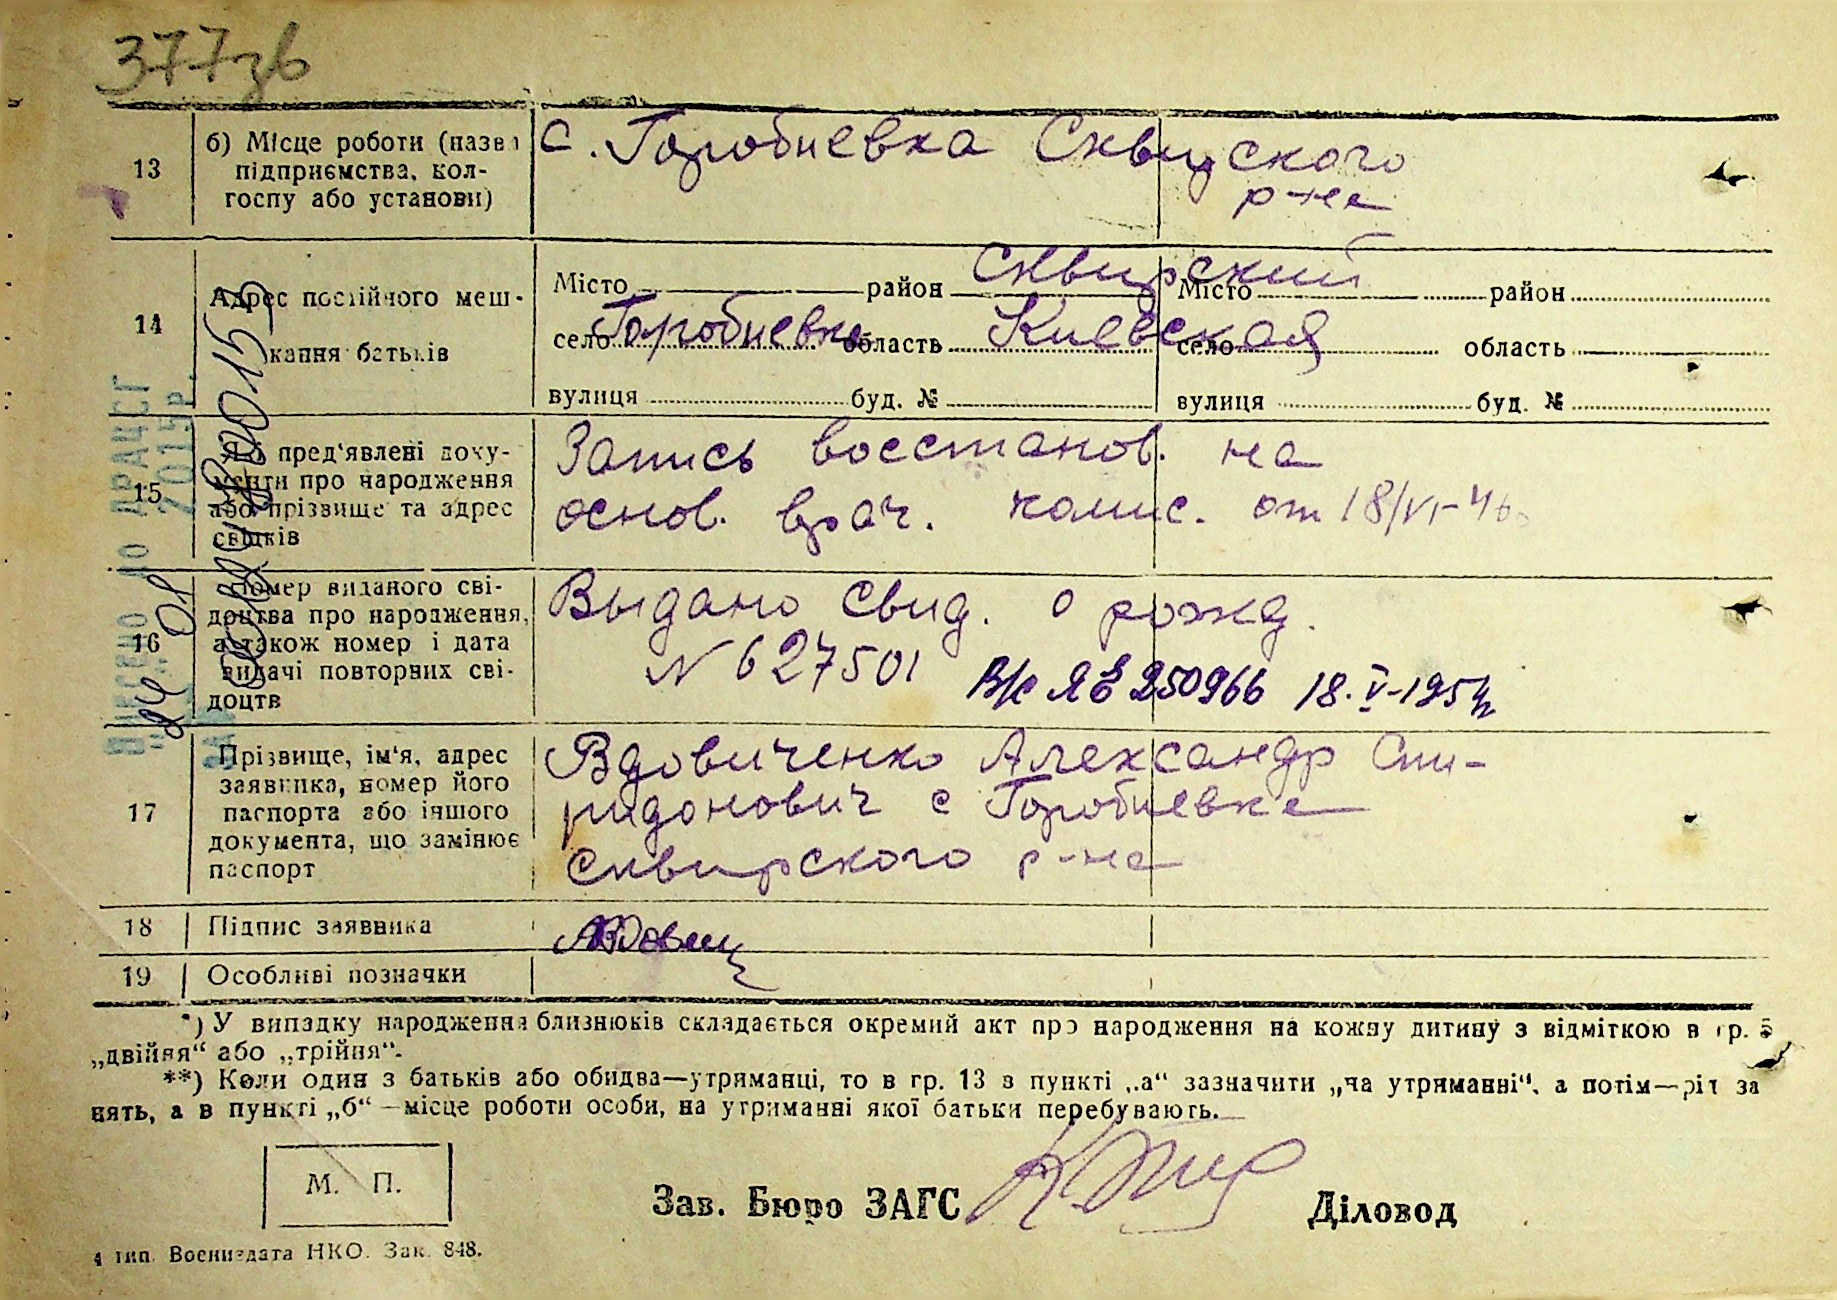 377зв
13
б) Місце роботи (назва
підприємства, кол-
госпу або установи)
с. Горобиевка Сквирского
р-на
14
Адрес постійного меш-
кання батьків
Місто район Сквирский
село Горобиевка область Киевская
вулиця буд. №
Місто район
село область
вулиця буд. №
15
Які пред'явлені доку-
менти про народження
або прізвище та адрес
свідків
Запись восстанов. на
основ. врач. комис. от 18/VI-46
16
Номер виданого сві-
доцтва про народження,
а також номер і дата
видачі повторних сві-
доцтв
Выдано свид. о рожд.
N 627501
В/с ЯЕ 250966 18.V-1954
17
Прізвище, ім'я, адрес
заявника, номер його
паспорта або іншого
документа, що замінює
паспорт
Вдовиченко Александр Спи-
ридонович с Горобиевка
Сквирского р-на
18
Підпис заявника
19
Особливі позначки
*) У випадку народження близнюків складається окремий акт про народження на кожну дитину з відміткою в гр. 5
„двійня“ або „трійня“.
**) Коли один з батьків або обидва—утриманці, то в гр. 13 в пункті „а“ зазначити „на утриманні“, а потім—рід за
нять, а в пункті „б“—місце роботи особи, на утриманні якої батьки перебувають.
М. П.
Зав. Бюро ЗАГС
Діловод
4 тип. Воениздата НКО. Зак. 848.
ВНЕСЕНО ДО ДРАЦСГ
2015р.